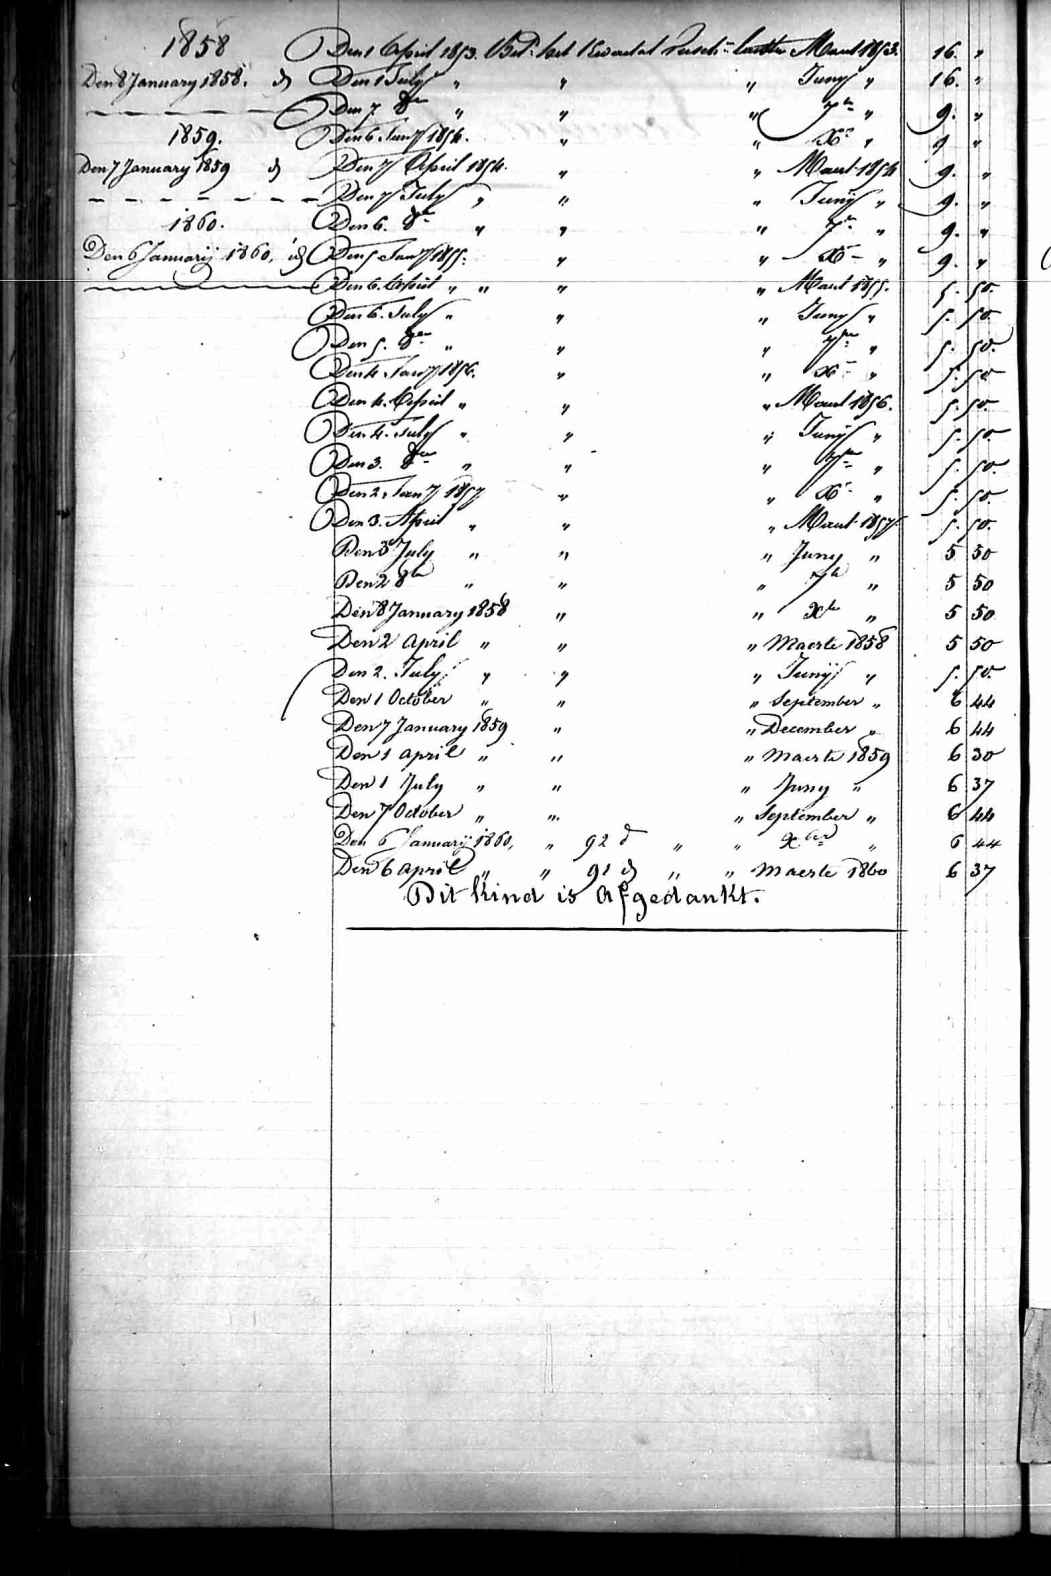 1858
Den 8 January 1858. d
1859.
Den 7 January 1859 d
1860.
Den 6 January 1860, id
Den 1 April 1853. Bet. het Kwartal Maart 1853. 16. "
Den 1 July " " " Juny " 16. "
Den 7 8er " " " 7br " 9. "
Den 6 Jany 1854. " " Xr " 9 "
Den 7 April 1854. " " Maart 1854 9. "
Den 7 July " " " Juny " 9. "
Den 6. 8er " " " 7r " 9. "
Den 5 Jany 1855. " " Xr " 9. "
Den 6. April " " " " Maart 1855. 5. 50.
Den 6. July " " " Juny " 5. 50.
Den 5. 8er " " " 7er " 5. 50.
Den 4. Jany 1856. " " Xr " 5. 50
Den 4. April " " " Maart 1856. 5. 50.
Den 4. July " " " Juny " 5. 50
Den 3. 8er " " " 7er " 5. 50.
Den 2. Jany 1857 " " Xr " 5. 50.
Den 3. April " " " Maart 1857. 5. 50.
Den 3 July " " " Juny " 5 50
Den 2 8br " " " 7br " 5 50
Den 8 January 1858 " " Xbr " 5 50
Den 2 April " " " Maerte 1858 5 50
Den 2. July " " " Juny " 5. 50.
Den 1 October " " " September " 6 44
Den 7 January 1859 " " December " 6 44
Den 1 April " " " Maerte 1859 6 30
Den 1 July " " " Juny " 6 37
Den 7 October " " " September " 6 44
Den 6 January 1860, " 92 d " " xber " 6 44
Den 6 April " " 91 d " " Maerte 1860 6 37
Dit Kind is Afgedankt.